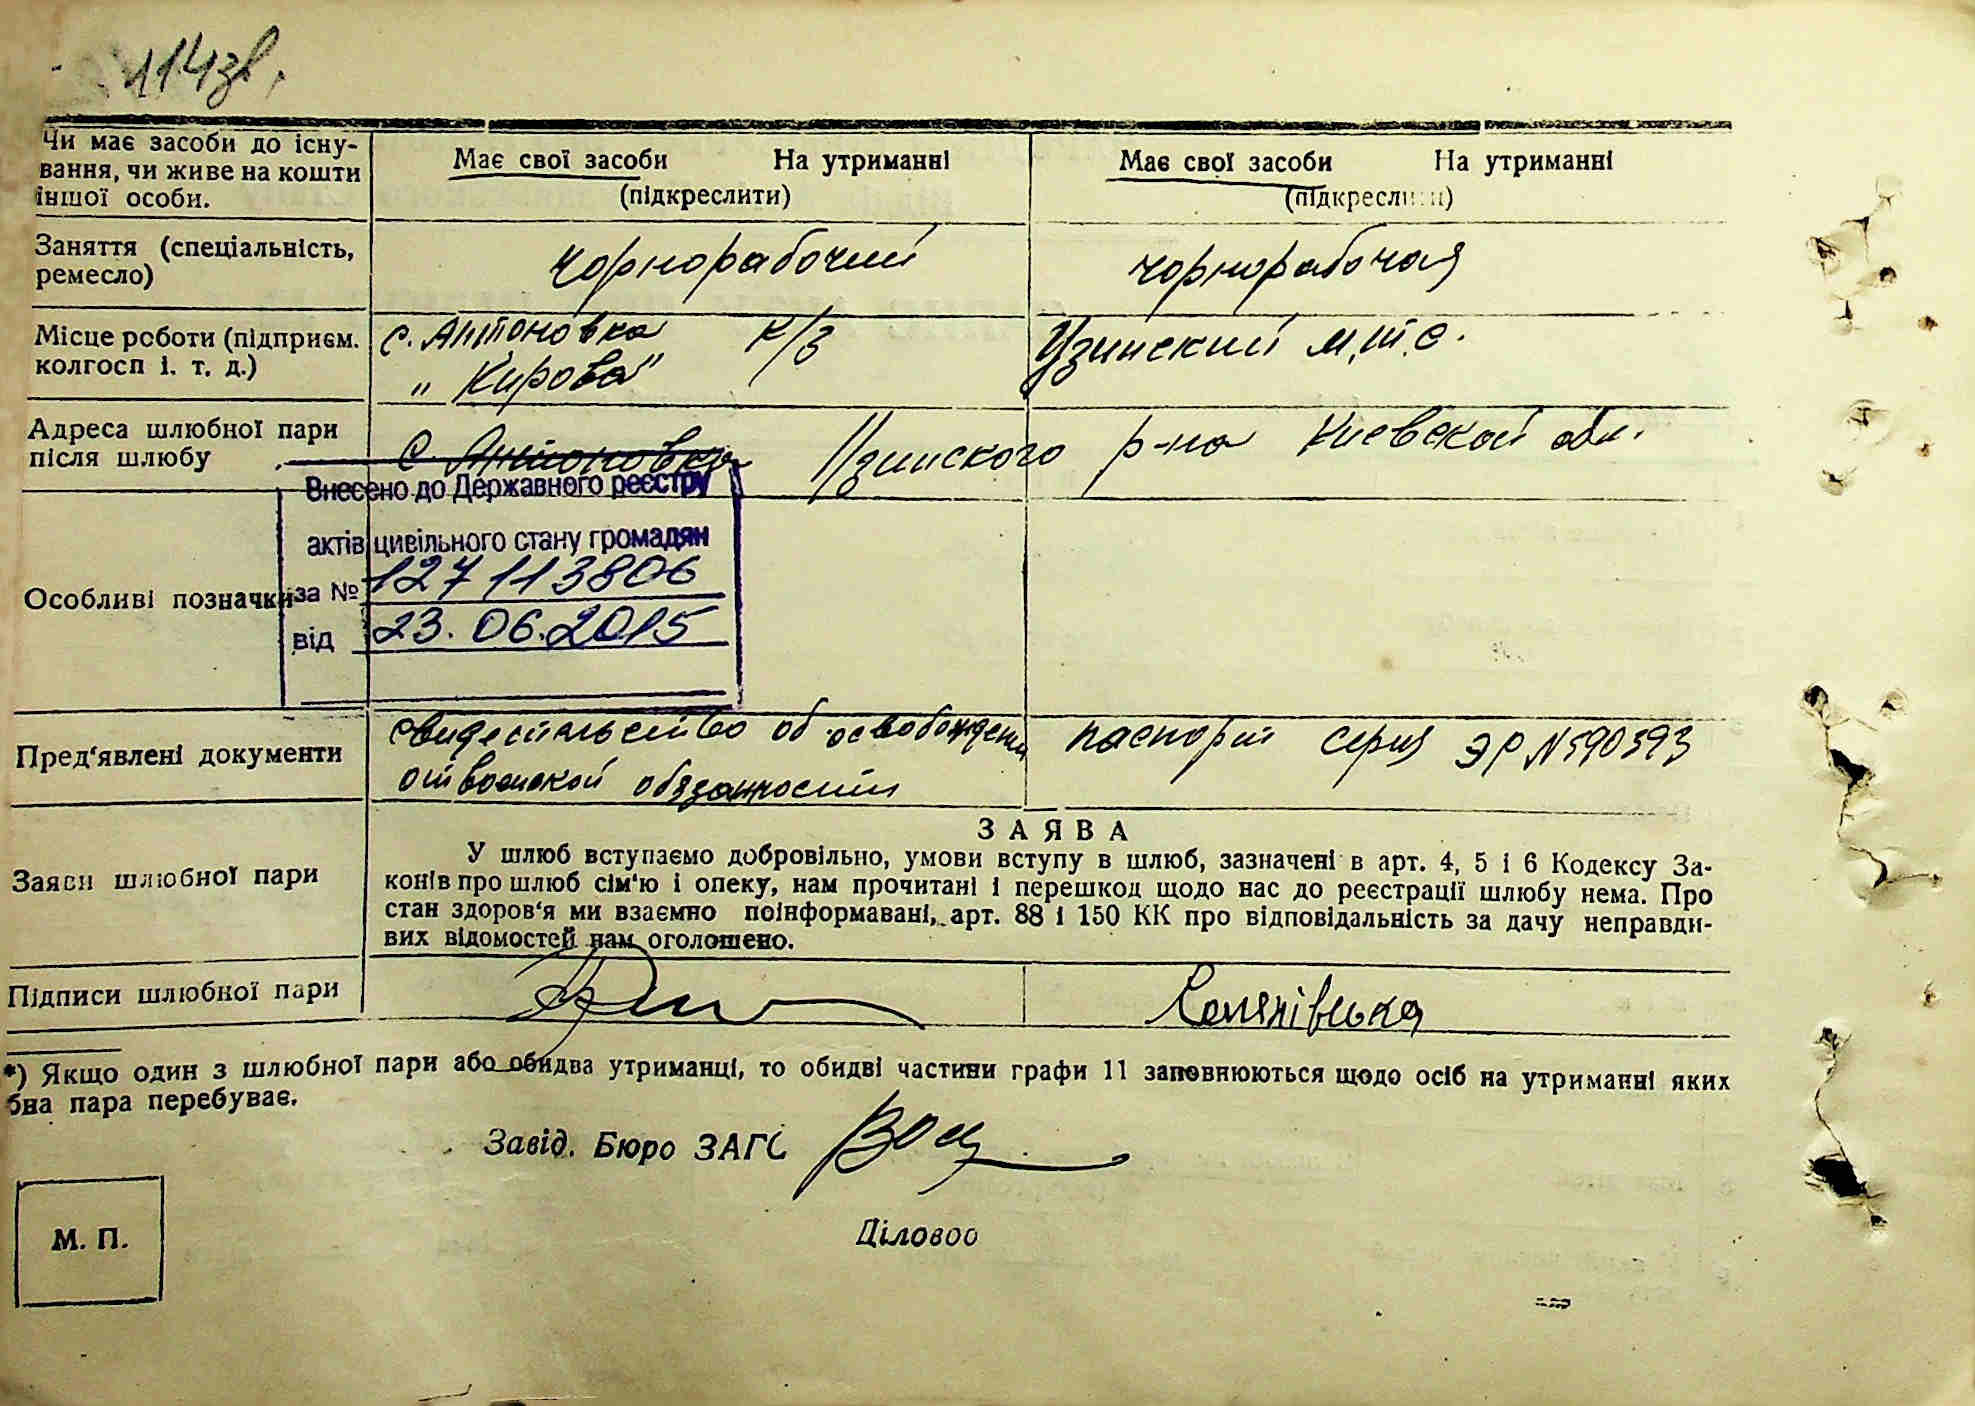 114зв.
Чи має засоби до існу-
вання, чи живе на кошти
іншої особи.
Має свої засоби На утриманні
(підкреслити)
Має свої засоби На утриманні
(підкреслити)
Заняття (спеціальність,
ремесло)
чорнорабочий
чорнорабочая
Місце роботи (підприєм.
колгосп і. т. д.)
с. Антоновка к/з
„Кирова"
Узинский м.т.с.
Адреса шлюбної пари
після шлюбу
с. Антоновка Узинского р-на Киевской обл.
Особливі позначки
Внесено до Державного реєстру
актів цивільного стану громадян
за № 127113806
від 23.06.2015
Пред'явлені документи
свидетельство об освобождении
от воинской обязанности
паспорт серия ЭР N 590593
Заяви шлюбної пари
ЗАЯВА
У шлюб вступаємо добровільно, умови вступу в шлюб, зазначені в арт. 4, 5 і 6 Кодексу За-
конів про шлюб сім'ю і опеку, нам прочитані і перешкод щодо нас до реєстрації шлюбу нема. Про
стан здоров'я ми взаємно поінформавані, арт. 88 і 150 КК про відповідальність за дачу неправди-
вих відомостей нам оголошено.
Підписи шлюбної пари
*) Якщо один з шлюбної пари або обидва утриманці, то обидві частини графи 11 заповнюються щодо осіб на утриманні яких
бна пара перебуває.
Завід. Бюро ЗАГС
Діловод
М. П.